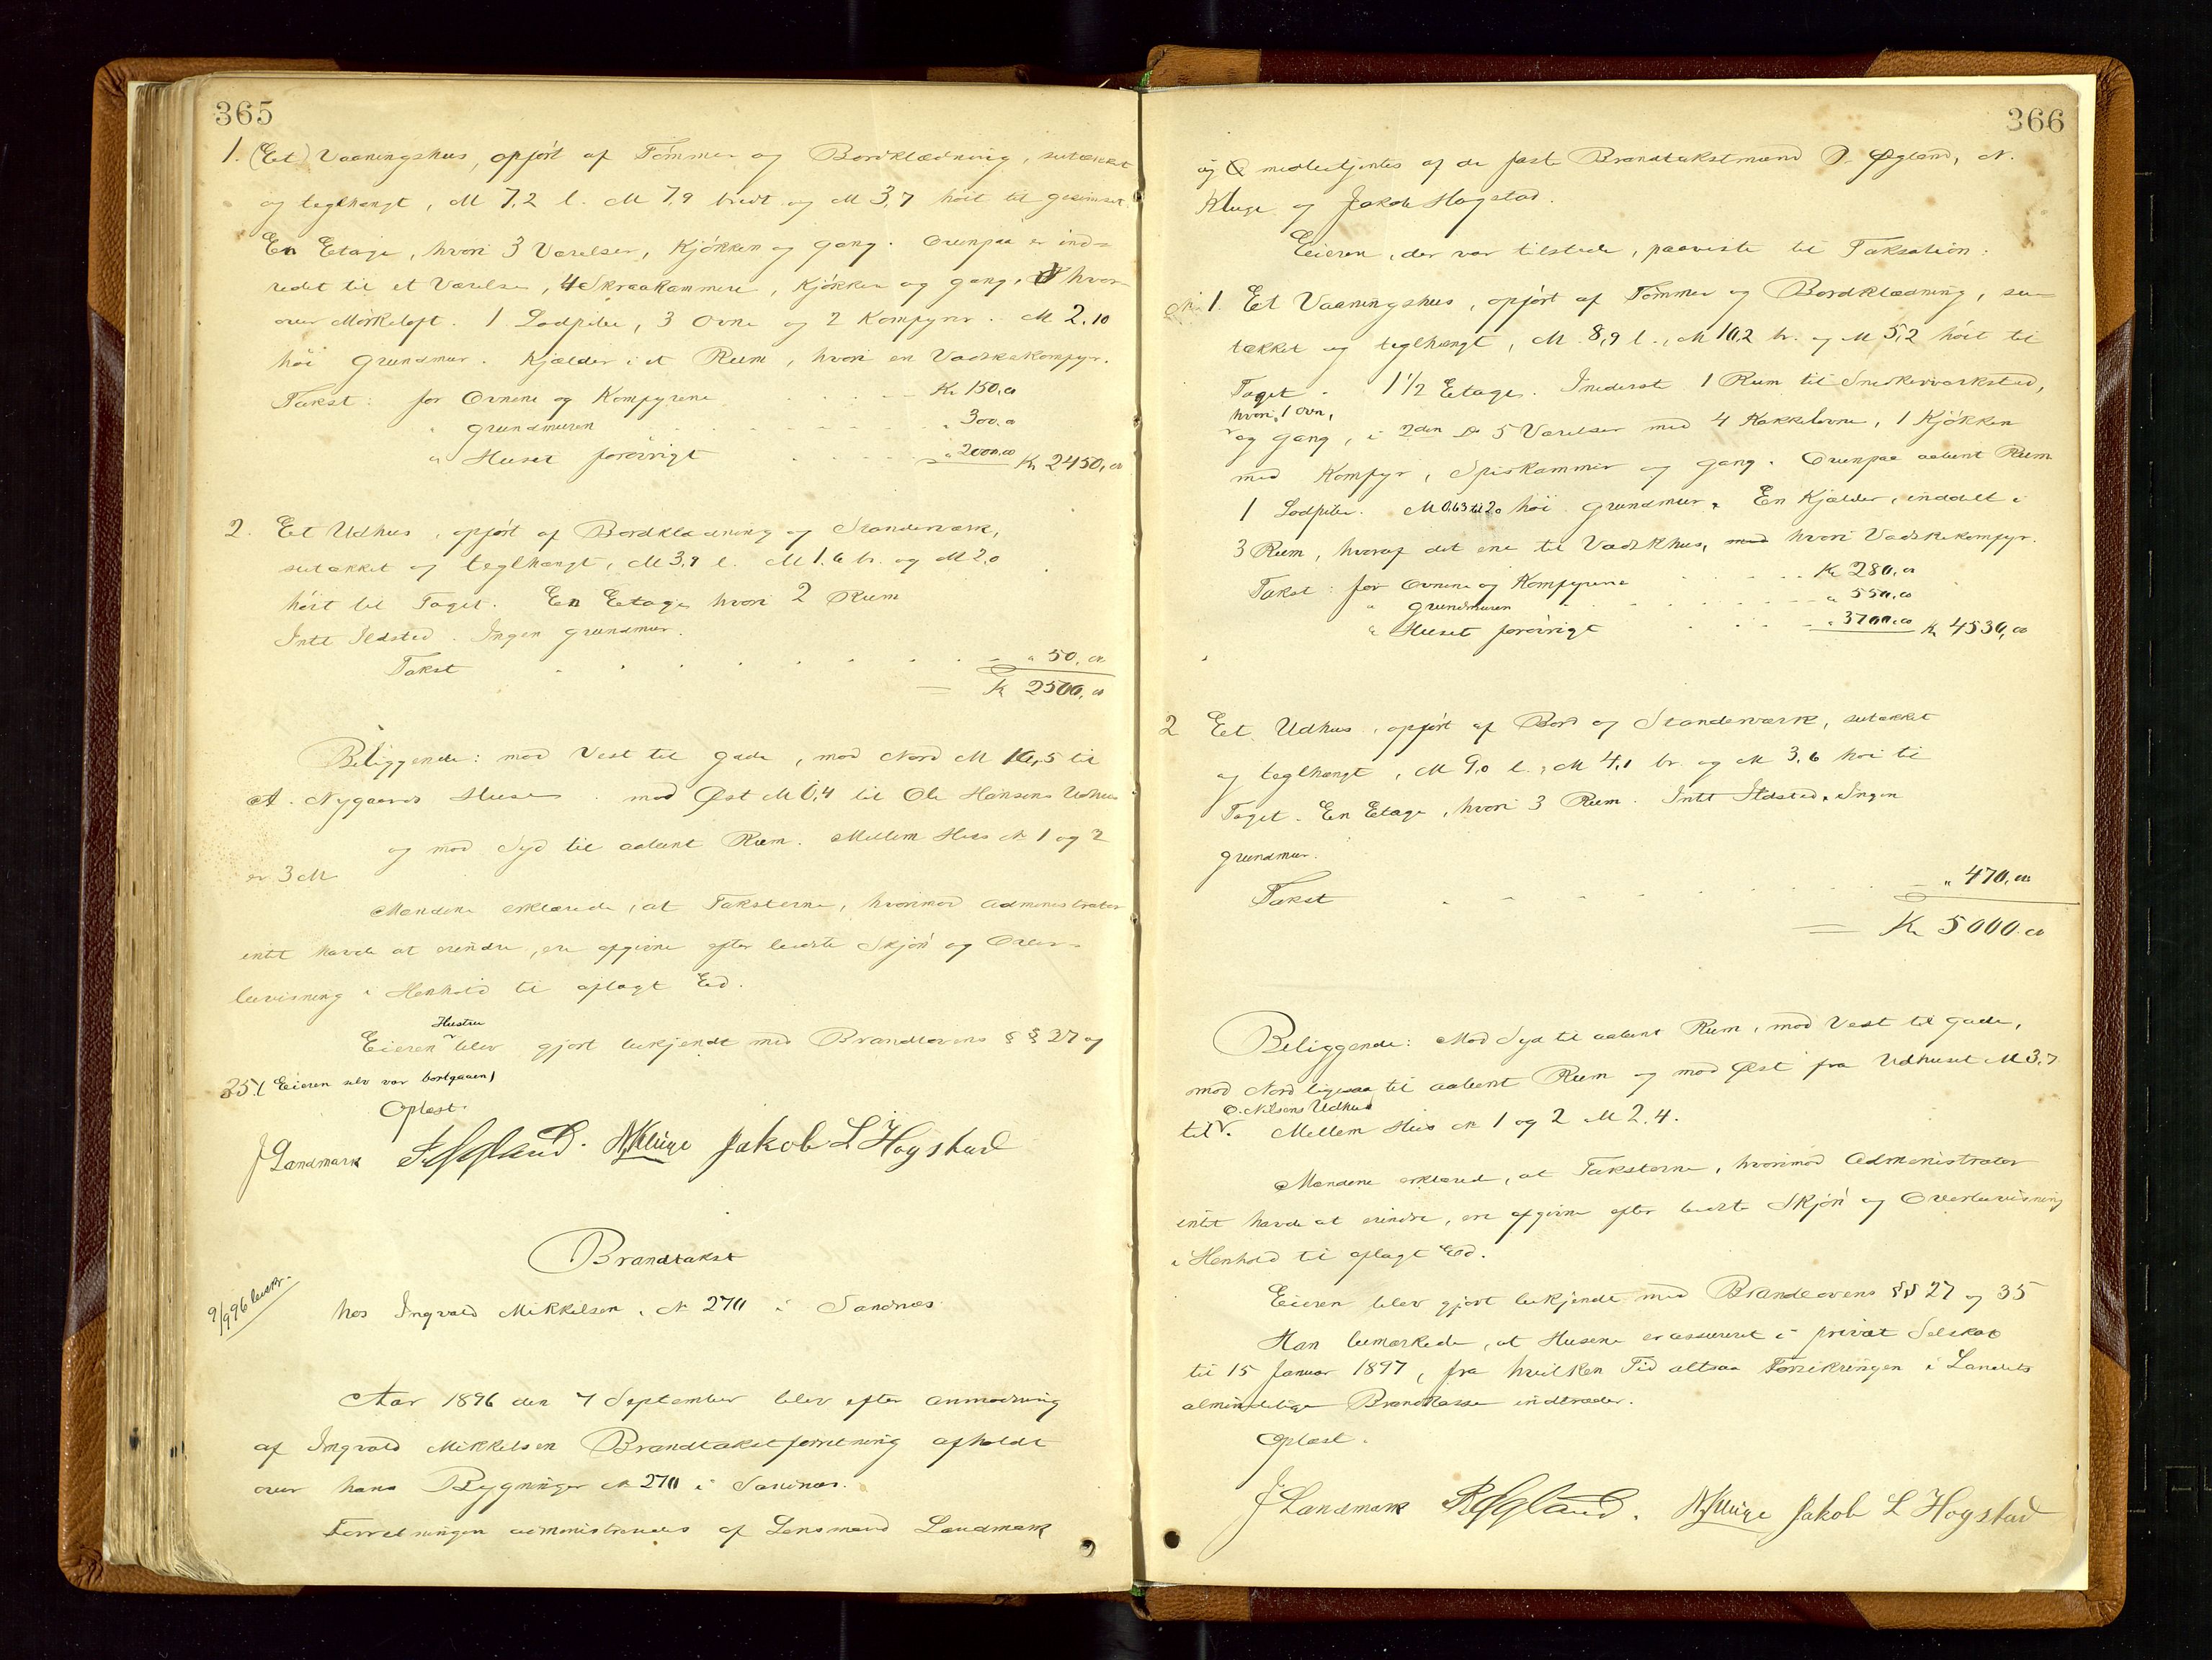 365
1. (Et) Vaaningshus, opført af Tømmer og Bordklædning, sutækket
og teglhængt, M 7,2 l. M 7,9 bredt og M 3,7 høit til gesimset.
En Etage, hvori 3 Værelser, Kjøkken og gang. Ovenpaa er ind-
redet til et Værelse, 4 Skraakammere, Kjøkken og gang, hvor-
over Mørkeloft. 1 Lodpibe, 3 Ovne og 2 Komfyrer. M 2.10
høi grundmur. Kjælder i et Rum, hvori en Vadskekomfyr.
Takst: for Ovnene og Komfyrene Kr 150,00
" grundmuren " 300.00
" Huset forøvrigt " 2000,00 Kr 2450,00
2. Et Udhus, opført af Bordklædning og Standerværk,
sutækket og teglhængt, M 3,9 l. M 1,6 br. og M 2,0
høit til Taget. En Etage hvori 2 Rum
Intet Ildsted. Ingen grundmur.
Takst " 50,00
= Kr 2500,00
Beliggende: mod Vest til gade, mod Nord M 10,5 til
A. Nygaards Huse mod Øst M 0,4 til Ole Hansens Udhus
og mod Syd til aabent Rum. Mellem Hus № 1 og 2
er 3 M
Mændene erklærede, at Taksterne, hvorimod Administrator
intet havde at erindre, ere afgivne efter bedste Skjøn og Over-
bevisning i Henhold til aflagt Ed.
Hustru
Eieren blev gjort bekjendt med Brandlovens §§ 27 og
35. (Eieren selv var bortgaaen)
Oplæst.
J Landmark P Øgland. N Kluge Jakob L Hogstad
Brandtakst
9/9 96 beskr.
hos Ingvald Mikkelsen, № 270 i Sandnæs
Aar 1896 den 7 September blev efter Anmodning
af Ingvald Mikkelsen Brandtakstforretning afholdt
over hans Bygninger № 270 i Sandnæs.
Forretningen administreredes af Lensmand Landmark
366
og medbetjentes af de faste Brandtakstmænd P. Øgland, N.
Kluge og Jakob Hogstad.
Eieren, der var tilstede, paaviste til Taksation:
№ 1. Et Vaaningshus, opført af Tømmer og Bordklædning, su-
tækket og teglhængt, M 8,9 l., M 10,2 br. og M 5,2 høit til
Taget. 1 1/2 Etage. I nederst 1 Rum til Snedkerværksted,
hvori 1 Ovn,
og gang, i 2den Do 5 Værelser med 4 Kakkelovne, 1 Kjøkken
med Komfyr, Spiskammer og gang. Ovenpaa aabent Rum
1 Lodpibe. M 0,63 til 2,0 høi grundmur. En Kjælder, inddelt i
3 Rum, hvoraf det ene til Vadskhus, med hvori Vadskekomfyr.
Takst: for Ovnene og Komfyrene Kr 280,00
" grundmuren " 550,00
" Huset forøvrigt " 3700,00 Kr 4530,00
2 Et Udhus, opført af Bord og Standerværk, sutækket
og teglhængt, M 9,0 l., M 4,1 br. og M 3,6 høi til
Taget. En Etage, hvori 3 Rum. Intet Ildsted. Ingen
grundmur.
Takst " 470,00
= Kr 5000.00
Beliggende: Mod Syd til aabent Rum, mod Vest til gade,
mod Nord ligesaa til aabent Rum og mod Øst fra Udhuset M 3,7
O. Nilsens Udhus
til. Mellem Hus № 1 og 2 M 2,4.
Mændene erklærede, at Taksterne, hvorimod Administrator
intet havde at erindre, ere afgivne efter bedste Skjøn og Overbevisning
i Henhold til aflagt Ed.
Eieren blev gjort bekjendt med Brandlovens §§ 27 og 35
Han bemærkede, at Husene er assureret i privat Selskab
til 15 Januar 1897, fra hvilken Tid altsaa Forsikringen i Landets
almindelige Brandkasse indtræder.
Oplæst.
J. Landmark P Øgland. N Kluge Jakob L Hogstad